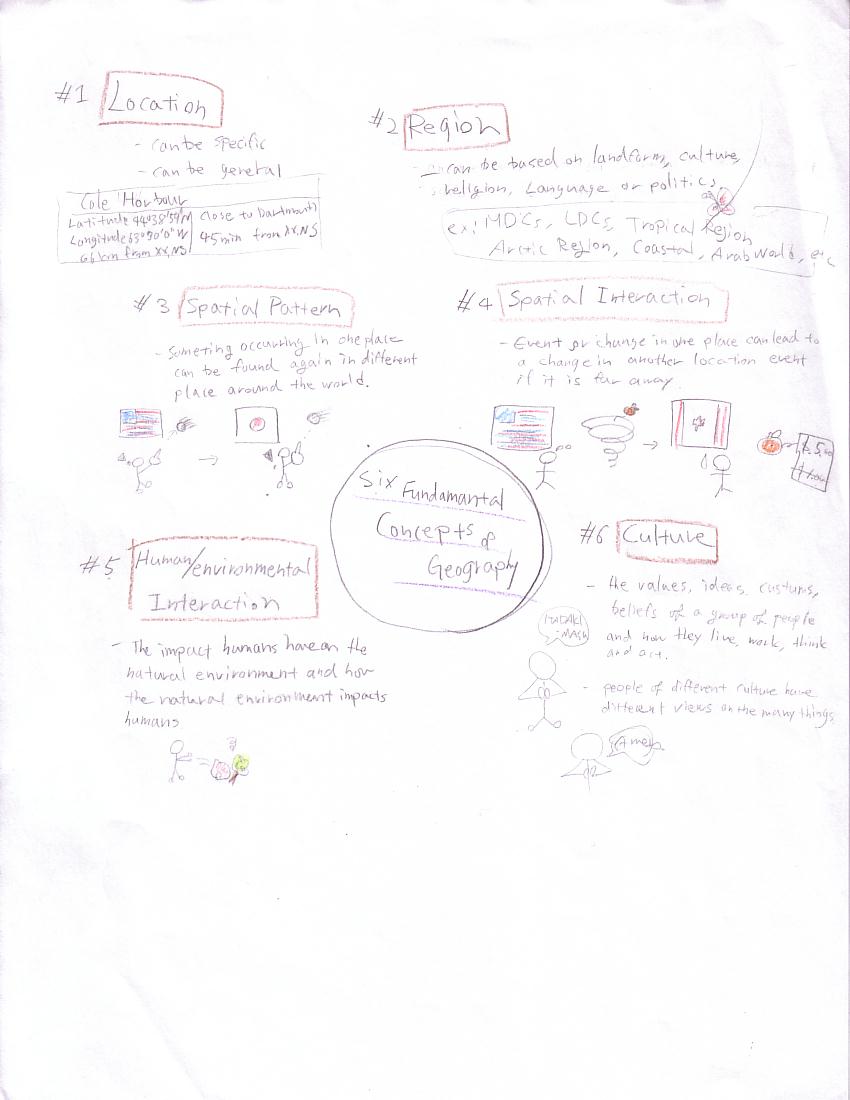 #1 Location
- can be specific
- can be general
Cole Harbour
Latitude 44°38'59"N
Longitude 63°30'0"W
from XX,NS
Close to Dartmouth
45min from XX,NS
#2 Region
- can be based on landform, culture,
religion, Language or politics
ex: MDCs, LDCs, Tropical Region
Arctic Region, Coastal, Arab World, etc
#3 Spatial Pattern
- Someting occurring in one place
can be found again in different
place around the world.
#4 Spatial Interaction
- Event or change in one place can lead to
a change in another location event
if it is far away.
Six Fundamantal
Concepts of
Geography
#5 Human/environmental
Interaction
- The impact humans have on the
natural environment and how
the natural environment impacts
humans
#6 Culture
- the values, ideas, custums,
beliefs of a group of people
and how they live, work, think
and act.
ITADAKI
MASU
- people of different culture have
different views on the many things.
Amen